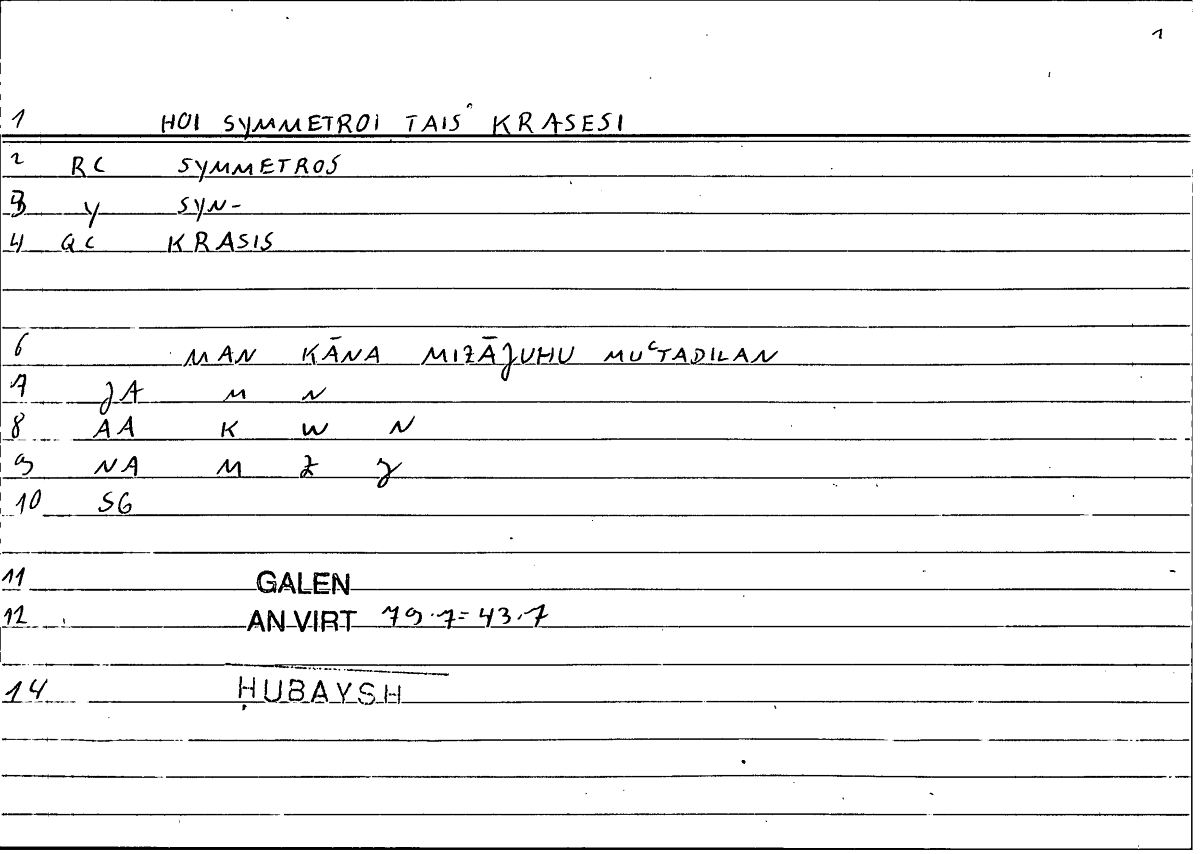 1
1 HOI SYMMETROI TAIS KRASESI
2 RC SYMMETROS
3 Y SYN-
4 QC KRASIS
6 MAN KĀNA MIZĀJUHU MUʿTADILAN
7 JA M N
8 AA K W N
9 NA M Z J
10 SG
11 GALEN
12 AN VIRT 79.7=43.7
14 ḤUBAYSH